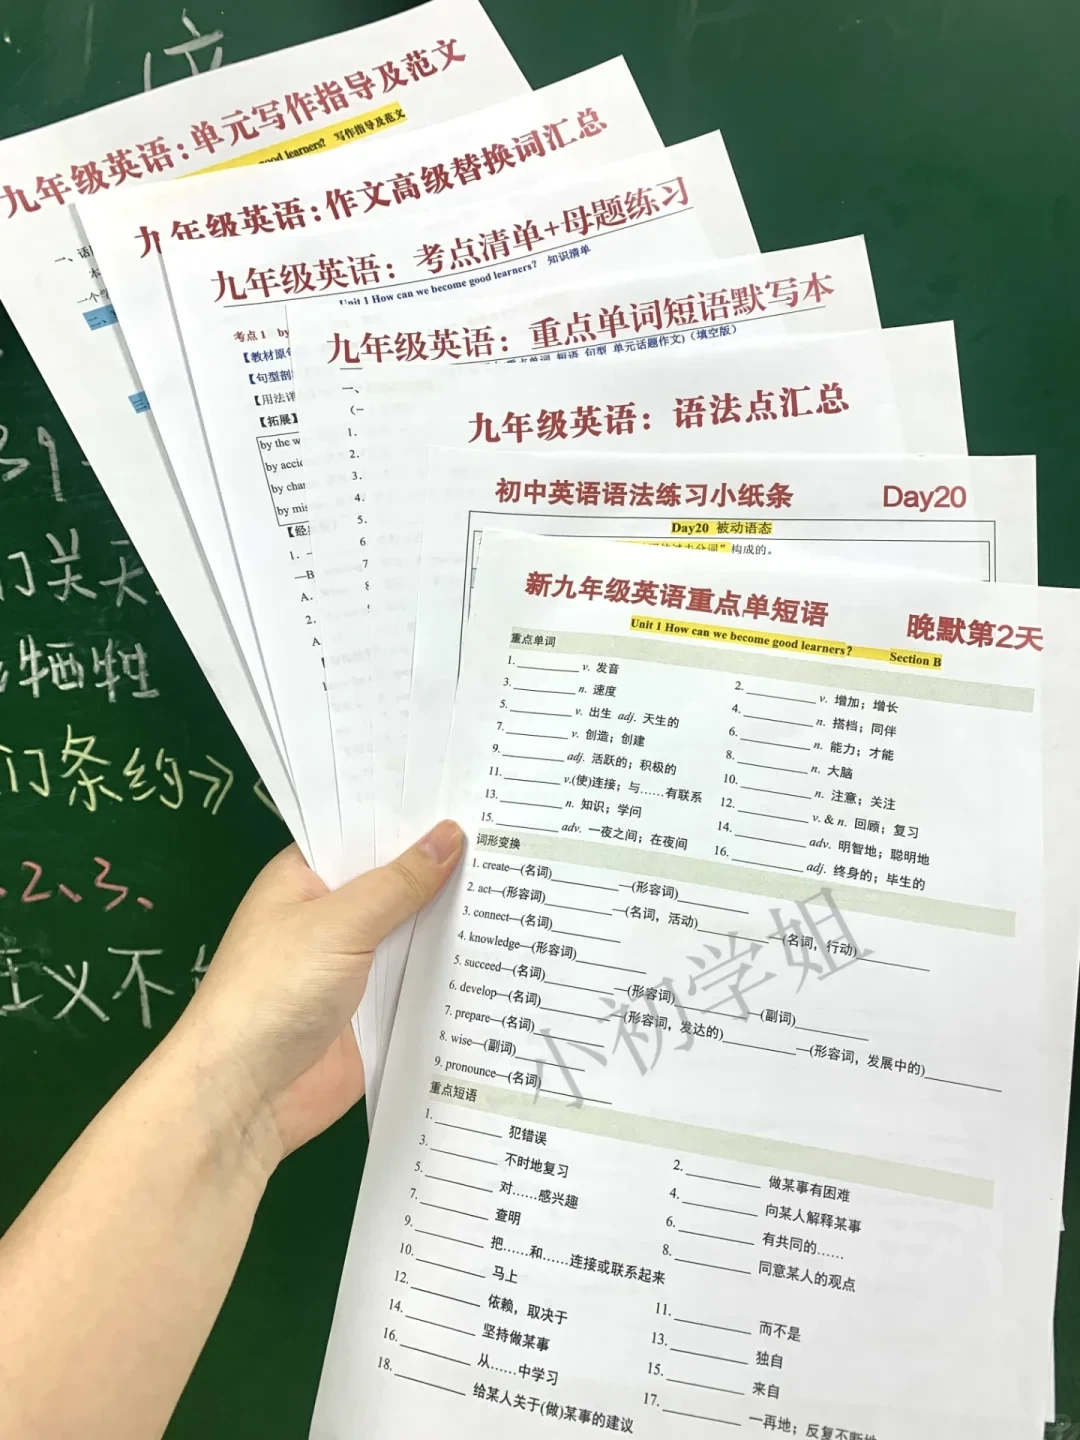 位
九年级英语：单元写作指导及范文
good learners? 写作指导及范文
九年级英语：作文高级替换词汇总
九年级英语：考点清单+母题练习
Unit 1 How can we become good learners? 知识清单
考点 1 by
【教材原
【句型剖
【用法详
【拓展】
by the w
by accid
by cha
by mis
九年级英语：重点单词短语默写本
重点单词 短语 句型 单元话题作文)（填空版）
一、
1.
2.
3.
4.
5.
6
7
九年级英语：语法点汇总
初中英语语法练习小纸条 Day20
Day20 被动语态
构成的。
新九年级英语重点单短语 晚默第2天
Unit 1 How can we become good learners? Section B
重点单词
1.__________ v. 发音 2.__________ v. 增加；增长
3.__________ n. 速度 4.__________ n. 搭档；同伴
5.__________ v. 出生 adj. 天生的 6.__________ n. 能力；才能
7.__________ v. 创造；创建 8.__________ n. 大脑
9.__________ adj. 活跃的；积极的 10.__________ n. 注意；关注
11.__________ v.(使)连接；与……有联系 12.__________ v. & n. 回顾；复习
13.__________ n. 知识；学问 14.__________ adv. 明智地；聪明地
15.__________ adv. 一夜之间；在夜间 16.__________ adj. 终身的；毕生的
词形变换
1. create—(名词)__________—(形容词)__________
2. act—(形容词)__________—(名词，活动)__________—(名词，行动)__________
3. connect—(名词)__________
4. knowledge—(形容词)__________
5. succeed—(名词)__________—(形容词)__________—(副词)__________
6. develop—(名词)__________—(形容词，发达的)__________—(形容词，发展中的)__________
7. prepare—(名词)__________
8. wise—(副词)__________
9. pronounce—(名词)__________
小初学姐
重点短语
1.__________ 犯错误 2.__________ 做某事有困难
3.__________ 不时地复习 4.__________ 向某人解释某事
5.__________ 对……感兴趣 6.__________ 有共同的……
7.__________ 查明 8.__________ 同意某人的观点
9.__________ 把……和……连接或联系起来
10.__________ 马上 11.__________ 而不是
12.__________ 依赖，取决于 13.__________ 独自
14.__________ 坚持做某事 15.__________ 来自
16.__________ 从……中学习 17.__________ 一再地；反复不断地
18.__________ 给某人关于(做)某事的建议
门关天
牺牲
门条约》
2、3、
义不